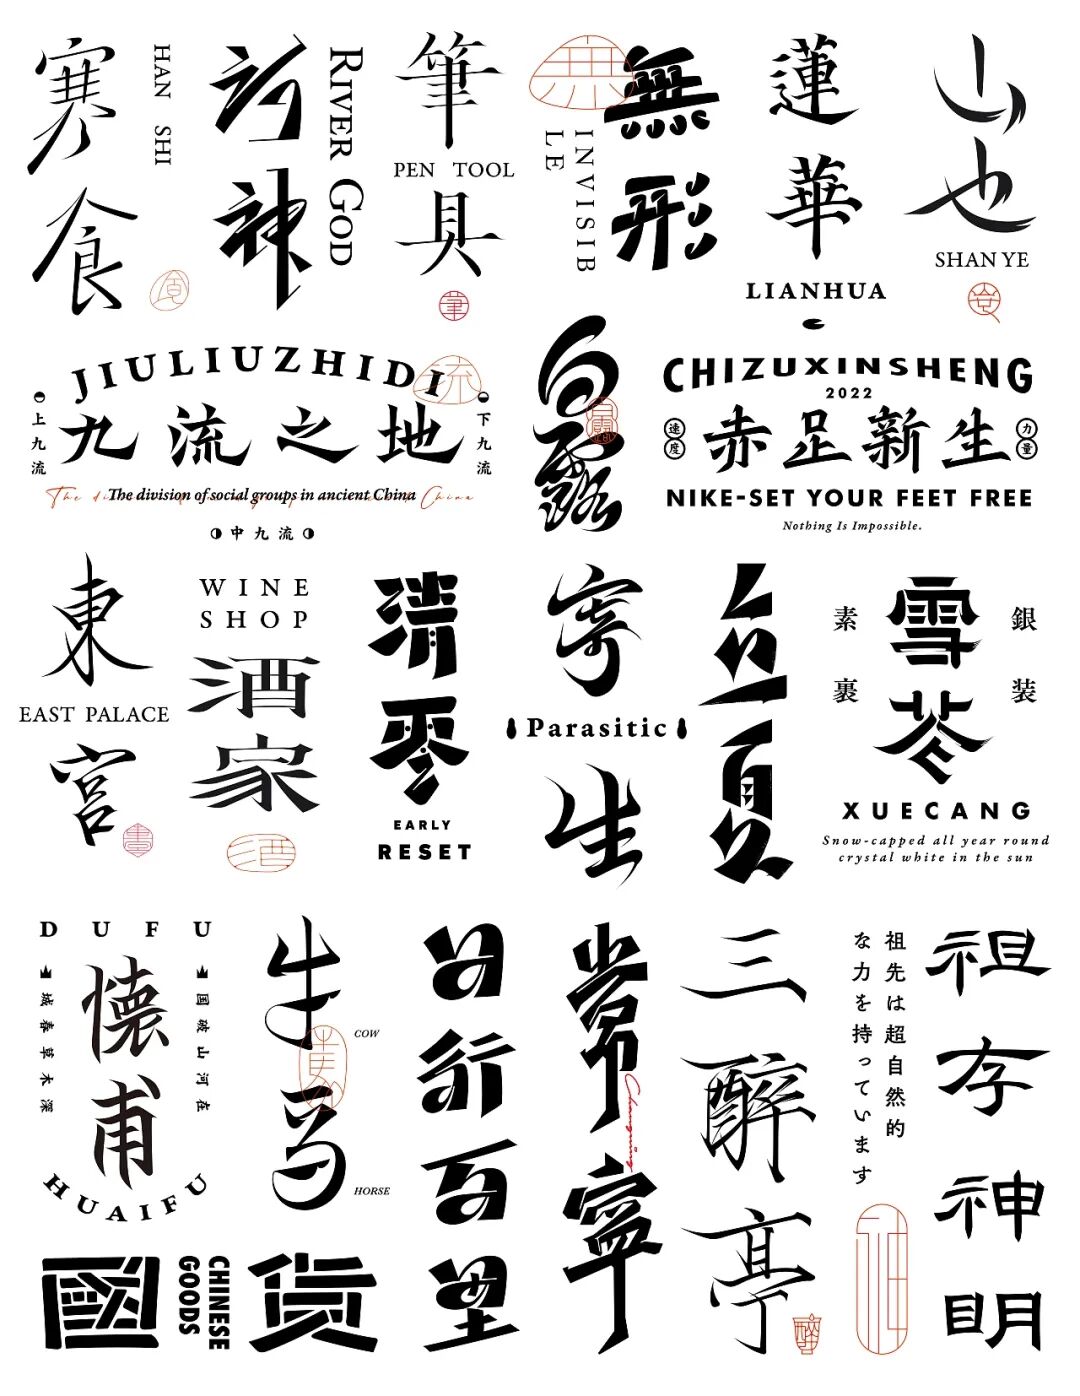 寒食
HAN SHI
河神
RIVER GOD
筆具
PEN TOOL
筆
無
無形
INVISIB
LE
蓮華
LIANHUA
山也
SHAN YE
JIULIUZHIDI
流
上九流
九流之地
下九流
The division of social groups in ancient China
中九流
白露
白露
CHIZUXINSHENG
2022
速度
赤足新生
力量
NIKE-SET YOUR FEET FREE
Nothing Is Impossible.
東宮
EAST PALACE
WINE
SHOP
酒家
酒
清零
EARLY
RESET
寄生
Parasitic
立夏
素裹
雪苍
銀装
XUECANG
Snow-capped all year round
crystal white in the sun
DUFU
城春草木深
懷甫
国破山河在
HUAIFU
牛马
COW
HORSE
日行百里
常寧
Changning
三醉亭
祖先は超自然的
な力を持っています
祖存神明
國货
CHINESE
GOODS